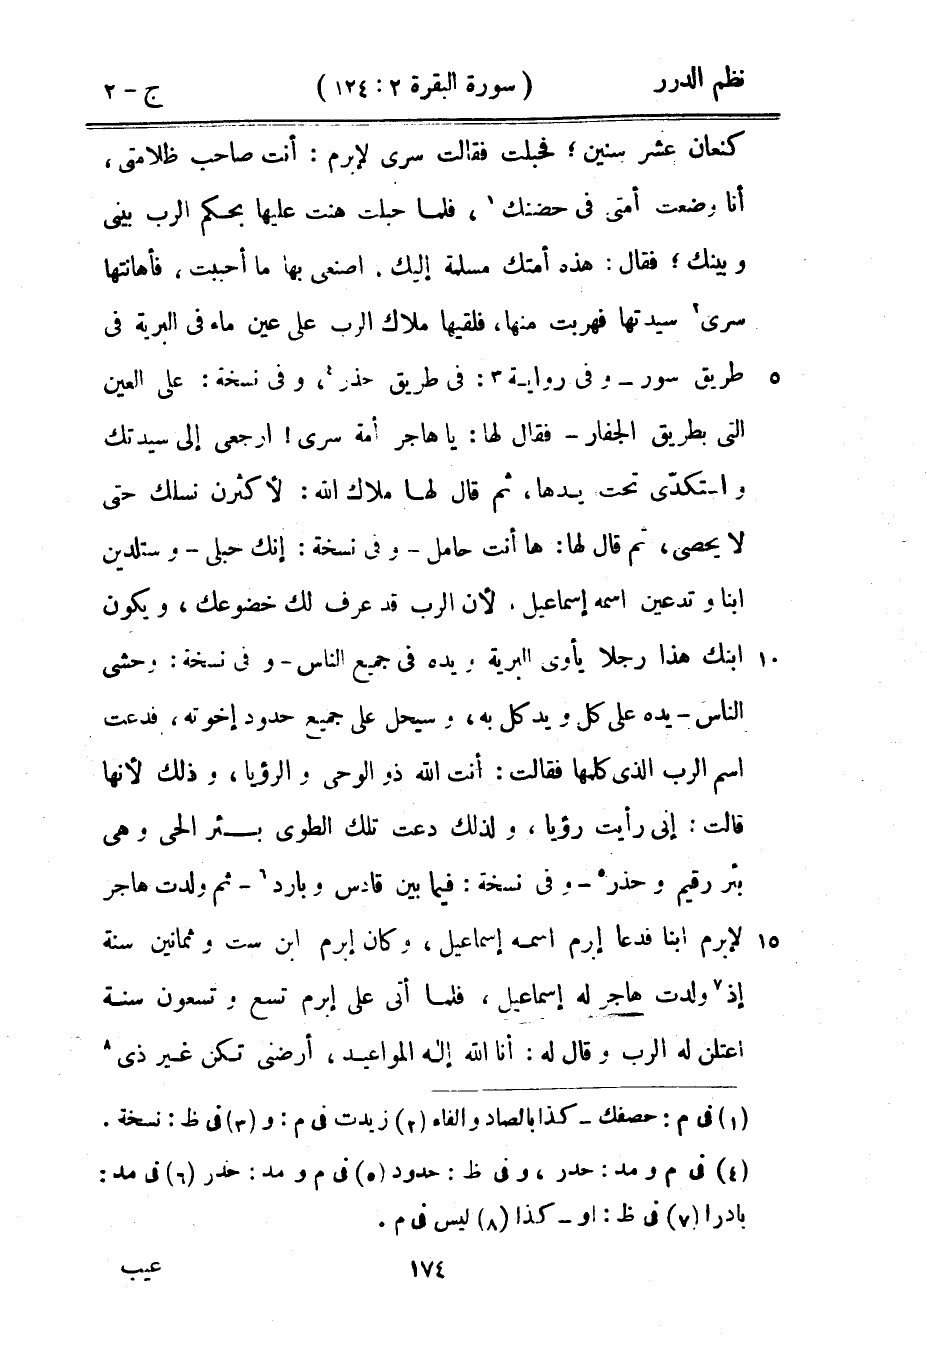 نظم الدرر ( سورة البقرة ٢ : ١٢٤ ) ج - ٢
كنعان عشر سنين ؛ فحبلت فقالت سرى لإبرم : أنت صاحب ظلامتى ،
أنا وضعت أمتى فى حضنك ١ ، فلما حبلت هنت عليها يحكم الرب بينى
و بينك ؛ فقال : هذه أمتك مسلمة إليك . اصنعى بها ما أحببت ، فأهانتها
سرى ٢ سيدتها فهربت منها ، فلقيها ملاك الرب على عين ماء فى البرية فى
٥ طريق سور - و فى رواية ٣ : فى طريق حذر ٤ ، و فى نسخة : على العين
التى بطريق الجفار - فقال لها : يا هاجر أمة سرى ! ارجعى إلى سيدتك
و استكدّى تحت يدها ، ثم قال لها ملاك الله : لأكثرن نسلك حتى
لا يحصى ، ثم قال لها : ها أنت حامل - و فى نسخة : إنك حبلى - و ستلدين
ابنا و تدعين اسمه إسماعيل . لأن الرب قد عرف لك خضوعك ، و يكون
١٠ ابنك هذا رجلا يأوى البرية و يده فى جميع الناس - و فى نسخة : وحشى
الناس - يده على كل و يد كل به ، و سيحل على جميع حدود إخوته ، فدعت
اسم الرب الذى كلمها فقالت : أنت الله ذو الوحى و الرؤيا ، و ذلك لأنها
قالت : إنى رأيت رؤيا ، و لذلك دعت تلك الطوى بئر الحى و هى
بئر رقيم و حذر ٥ - و فى نسخة : فيما بين قادس و بارد ٦ - ثم ولدت هاجر
١٥ لإبرم ابنا فدعا إبرم اسمه إسماعيل ، و كان إبرم ابن ست و ثمانين سنة
إذ ٧ ولدت هاجر له إسماعيل ، فلما أتى على إبرم تسع و تسعون سنة
اعتلن له الرب و قال له : أنا الله إله المواعيد ، أرضنى تكن غير ذى ٨
(١) فى م : حصفك - كذا بالصاد و الفاء (٢) زيدت فى م : و (٣) فى ظ : نسخة .
(٤) فى م و مد : حدر ، و فى ظ : حدود (٥) فى م و مد : حدر (٦) فى مد :
بادرا (٧) فى ظ : او - كذا (٨) ليس فى م .
١٧٤ عيب